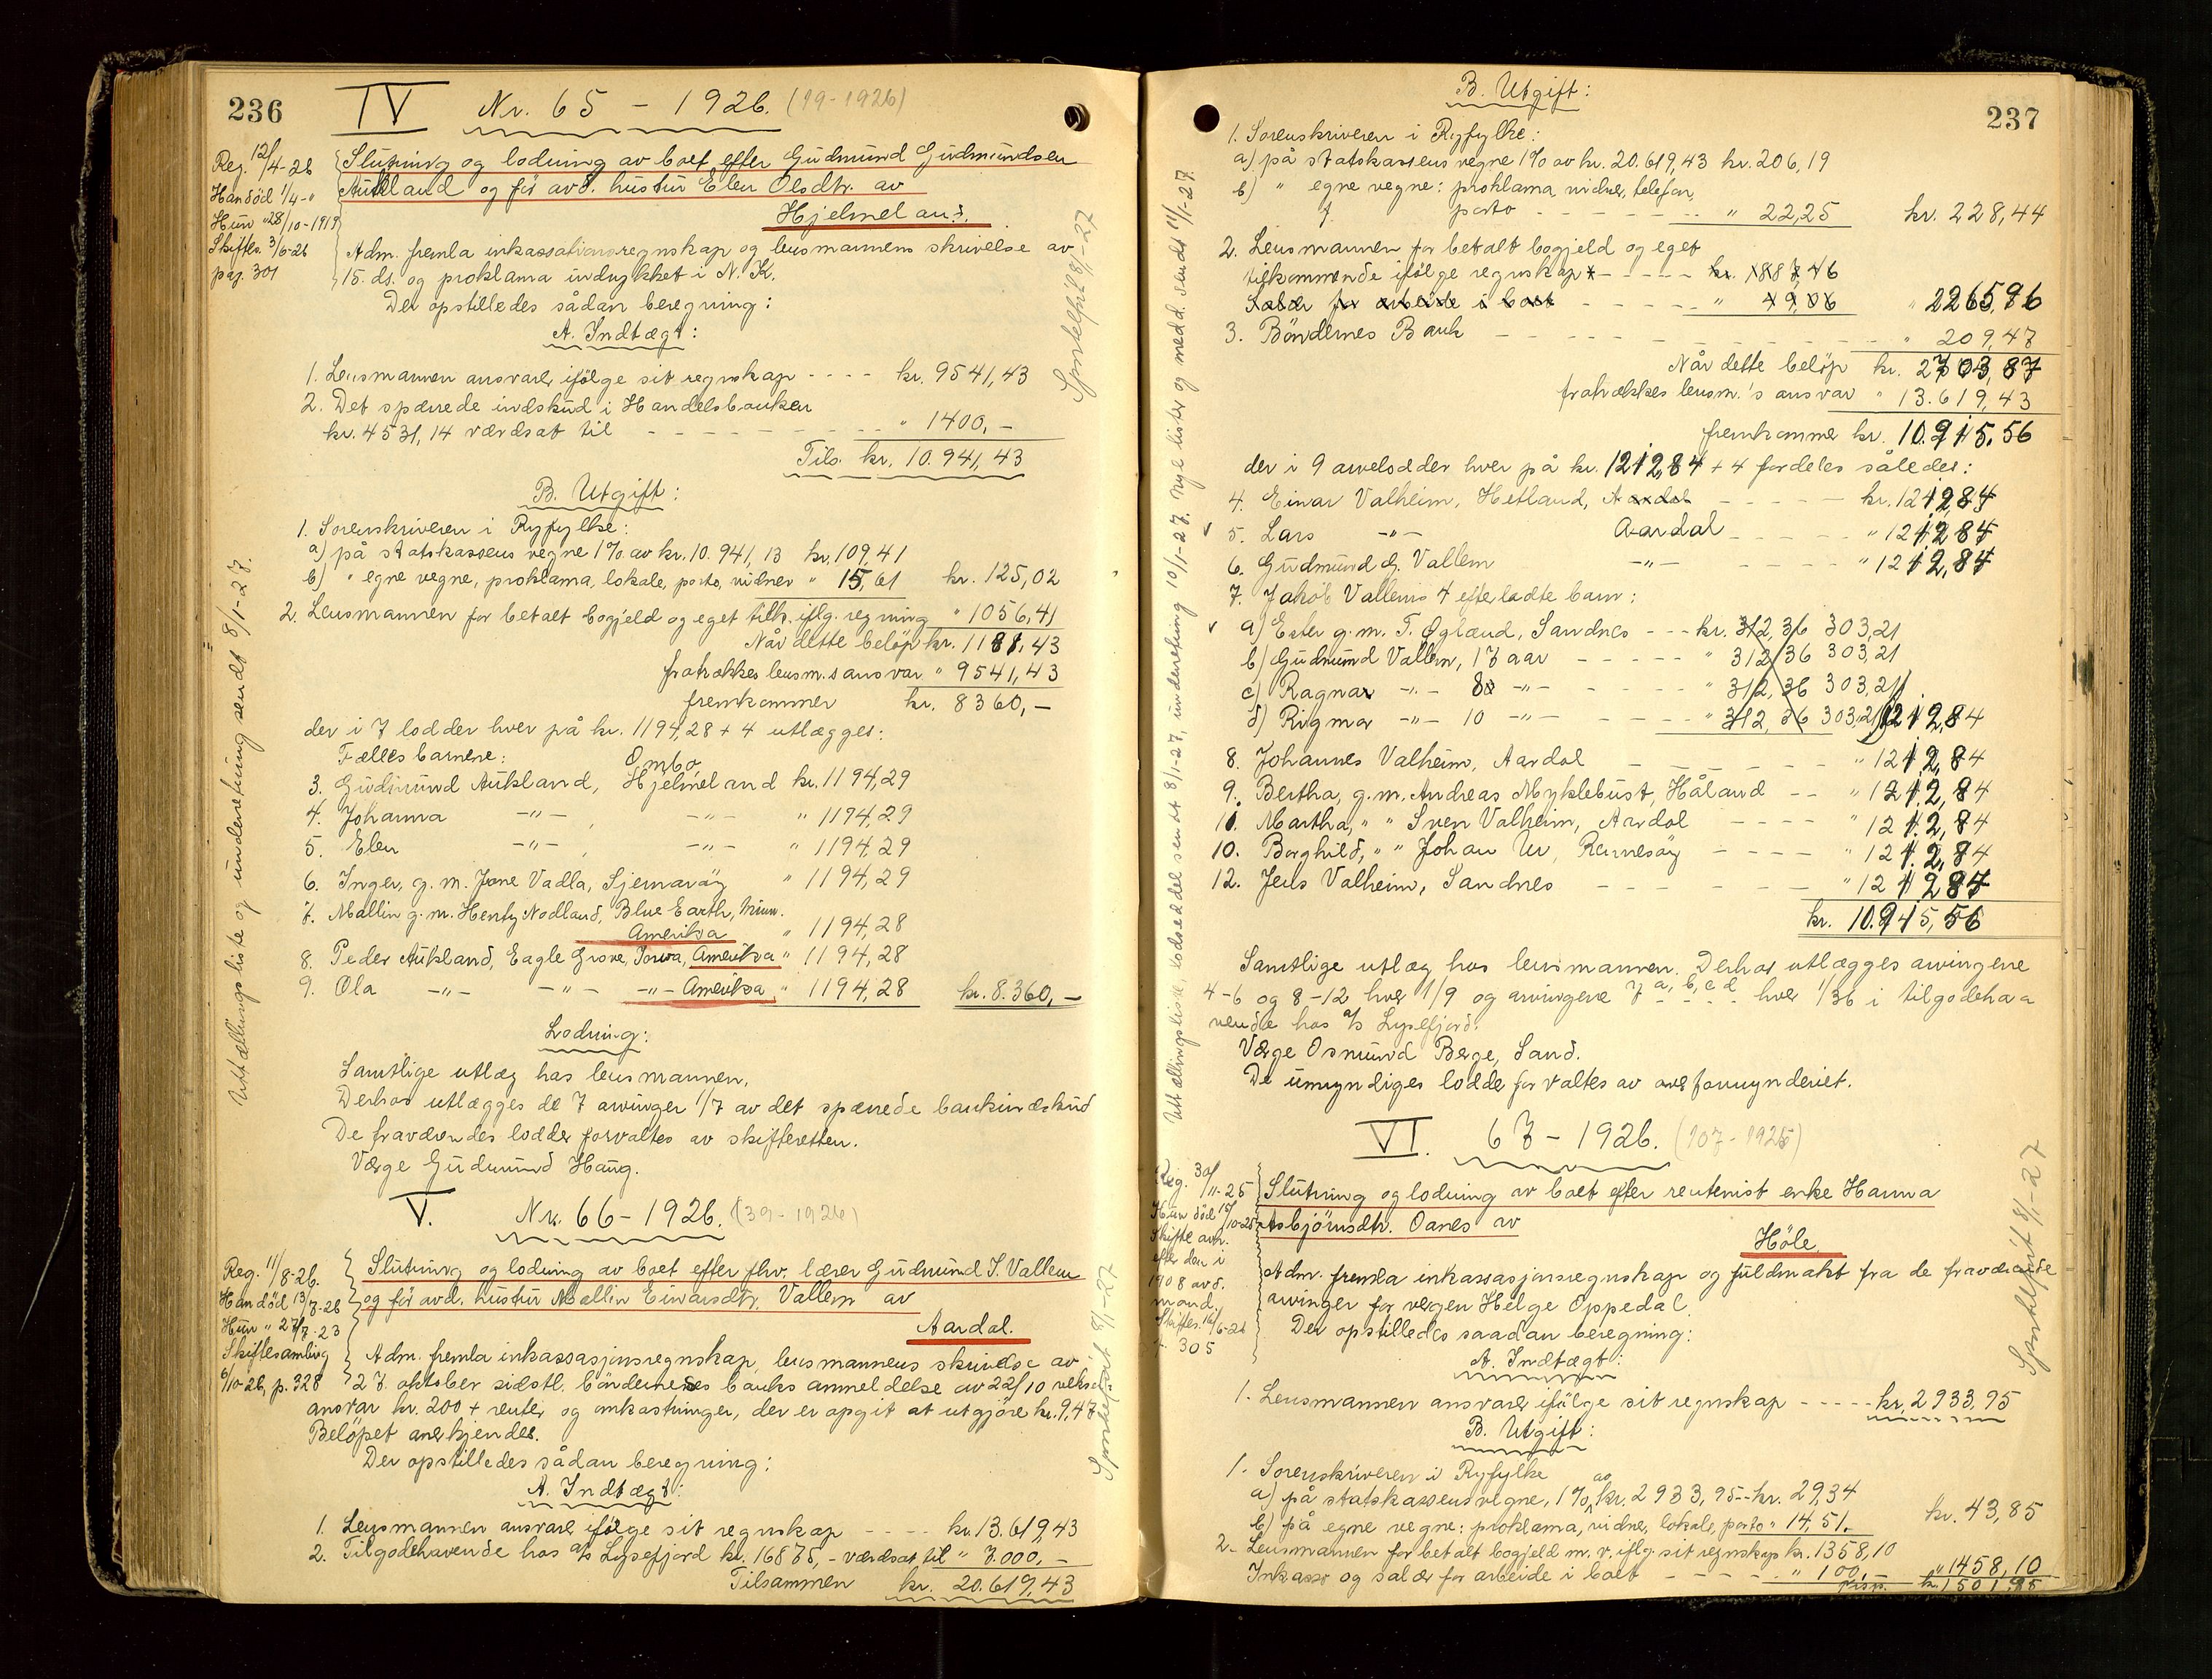 236
IV Nr. 65 - 1926. (19-1926)
Reg. 12/4-26
Han död 1/4-"
Hun " 28/10-1919
Skiftes. 3/6-26
pag. 301
Slutning og lodning av boet efter Gudmund Gudmundsen
Aukland og för avd. hustru Elen Olsdtr. av
Hjelmeland.
Adm. fremla inkassationsregnskap og lensmannens skrivelse av
15. ds. og proklama indrykket i N. K.
Der opstilledes sådan beregning:
A. Indtægt:
1. Lensmannen ansvarer ifölge sit regnskap - - - - kr. 9541,43
2. Det spærrede indskud i Handelsbanken
kr. 4531,14 værdsat til - - - - - - " 1400,-
Tils. kr. 10.941,43
B. Utgift:
1. Sorenskriveren i Ryfylke:
a) på statskassens vegne 1% av kr. 10.941,13 kr. 109,41
b) " egne vegne, proklama, lokale, porto, vidner " 15,61 kr. 125,02
2. Lensmannen for betalt bogjeld og eget tilk. iflg. regning " 1056,41
Når dette belöp kr. 1181,43
fratrækkes lensm.s ansvar " 9541,43
fremkommer kr. 8360,-
der i 7 lodder hver på kr. 1194,28 + 4 utlægges:
Fællesbarnene: Ombo,
3. Gudmund Aukland, Hjelmeland kr. 1194,29
4. Johanna -"- , -"- " 1194,29
5. Elen -"- , -"- " 1194,29
6. Inger, g. m. Jone Vadla, Sjernaröy " 1194,29
7. Mallin g. m. Henry Nodland, Blue Earth, Minn.
Amerika " 1194,28
8. Peder Aukland, Eagle Grove, Iowa, Amerika " 1194,28
9. Ola -"- -"- -"- Amerika " 1194,28 kr. 8.360,-
Lodning:
Samtlige utlæg hos lensmannen.
Derhos utlægges de 7 arvinger 1/7 av det spærrede bankindskud
De fraværendes lodder forvaltes av skifteretten.
Værge Gudmund Haug.
Uttællingsliste og underretning sendt 8/1-27.
Sportelfrit 8/1-27
V. Nr. 66-1926. (39-1926)
Reg. 11/8-26.
Han död 13/7-26
Hun " 27/7-23
Skiftesamling
6/10-26, p. 328
Slutning og lodning av boet efter fhv. lærer Gudmund J. Vallem
og för avd. hustru Mallin Einarsdtr. Vallem av
Aardal.
Adm. fremla inkassasjonsregnskap, lensmannens skrivelse av
27. oktober sidstl. böndernes banks anmeldelse av 22/10 veksel-
ansvar kr. 200 + renter og omkostninger, der er opgit at utgjöre kr. 9,47
Belöpet anerkjendes.
Der opstilledes sådan beregning:
A. Indtægt:
1. Lensmannen ansvarer ifölge sit regnskap - - - - kr. 13.619,43
2. Tilgodehavende hos a/s Lysefjord kr. 16875,- værdsat til " 7.000,-
Tilsammen kr. 20.619,43
Sportelfrit 8/1-27
237
B. Utgift:
1. Sorenskriveren i Ryfylke:
a) på statskassens vegne 1% av kr. 20.619,43 kr. 206,19
b) " egne vegne: proklama, vidner, telefon,
porto - - - - - - " 22,25 kr. 228,44
2. Lensmannen for betalt bogjeld og eget
tilkommende ifölge regnskap - - - - kr. 1887,46
Salær for arbeide i boet - - - - - " 49,06 " 2265,96
3. Böndernes Bank - - - - - - " 209,47
Når dette belöp kr. 2703,87
fratrækkes lensm.'s ansvar " 13.619,43
fremkommer kr. 10.915,56
der i 9 arvelodder hver på kr. 1212,84 + 4 fordeles således:
4. Einar Valheim, Hetland, Aardal - - - - kr. 1212,84
5. Lars -"- Aardal - - - - " 1212,84
6. Gudmund G. Vallem -"- - - - - " 1212,84
7. Jakob Vallems 4 efterladte barn:
a) Ester g. m. T. Øglænd, Sandnes - - - kr. 312,36 303,21
b) Gudmund Vallem, 17 aar - - - - - " 312,36 303,21
c) Ragnar -"- 8 -"- - - - - " 312,36 303,21
d) Rigmor -"- 10 -"- - - - - " 312,36 303,21 1212,84
8. Johannes Valheim, Aardal - - - - - - " 1212,84
9. Bertha, g. m. Andreas Myklebust, Håland - - " 1212,84
10. Martha, " " Sven Valheim, Aardal - - - - " 1212,84
10. Borghild, " " Johan Ur, Rennesöy - - - - " 1212,84
12. Jens Valheim, Sandnes - - - - - - " 1212,84
kr. 10.915,56
Samtlige utlæg hos lensmannen. Derhos utlægges arvingene
4-6 og 8-12 hver 1/9 og arvingene 7 a, b, c, d hver 1/36 i tilgodeha-
vende hos a/s Lysefjord.
Værge Osmund Berge, Sand.
De umyndiges lodder forvaltes av overformynderiet.
Uttællingsliste, lodseddel sendt 8/1-27, underretning 10/1-27. Nye lister og medd. sendt 11/1-27.
VI. 67-1926. (107-1925)
Reg. 30/11-25
Hun död 15/10-25
Skifte avh.
efter den i
1908 avd.
mand.
Skiftes. 16/6-26
p. 305
Slutning og lodning av boet efter rentenist enke Hanna
Asbjörnsdtr. Oanes av
Höle.
Adm. fremla inkassasjonsregnskap og fuldmakt fra de fraværende
arvinger for vergen Helge Oppedal.
Der opstilledes saadan beregning:
A. Indtægt:
1. Lensmannen ansvarer ifölge sit regnskap - - - - - kr. 2933,95
B. Utgift:
1. Sorenskriveren i Ryfylke
a) på statskassens vegne, 1% av kr. 2933,95 - - kr. 29,34
b) på egne vegne: proklama, vidne, lokale, porto " 14,51. kr. 43,85
2. Lensmannen for betalt bogjeld m. v. iflg. sit regnskap kr. 1358,10
Inkasso og salær for arbeide i boet - - - - - " 100,- " 1458,10
kr. 1501,95
Sportelfrit 8/1-27